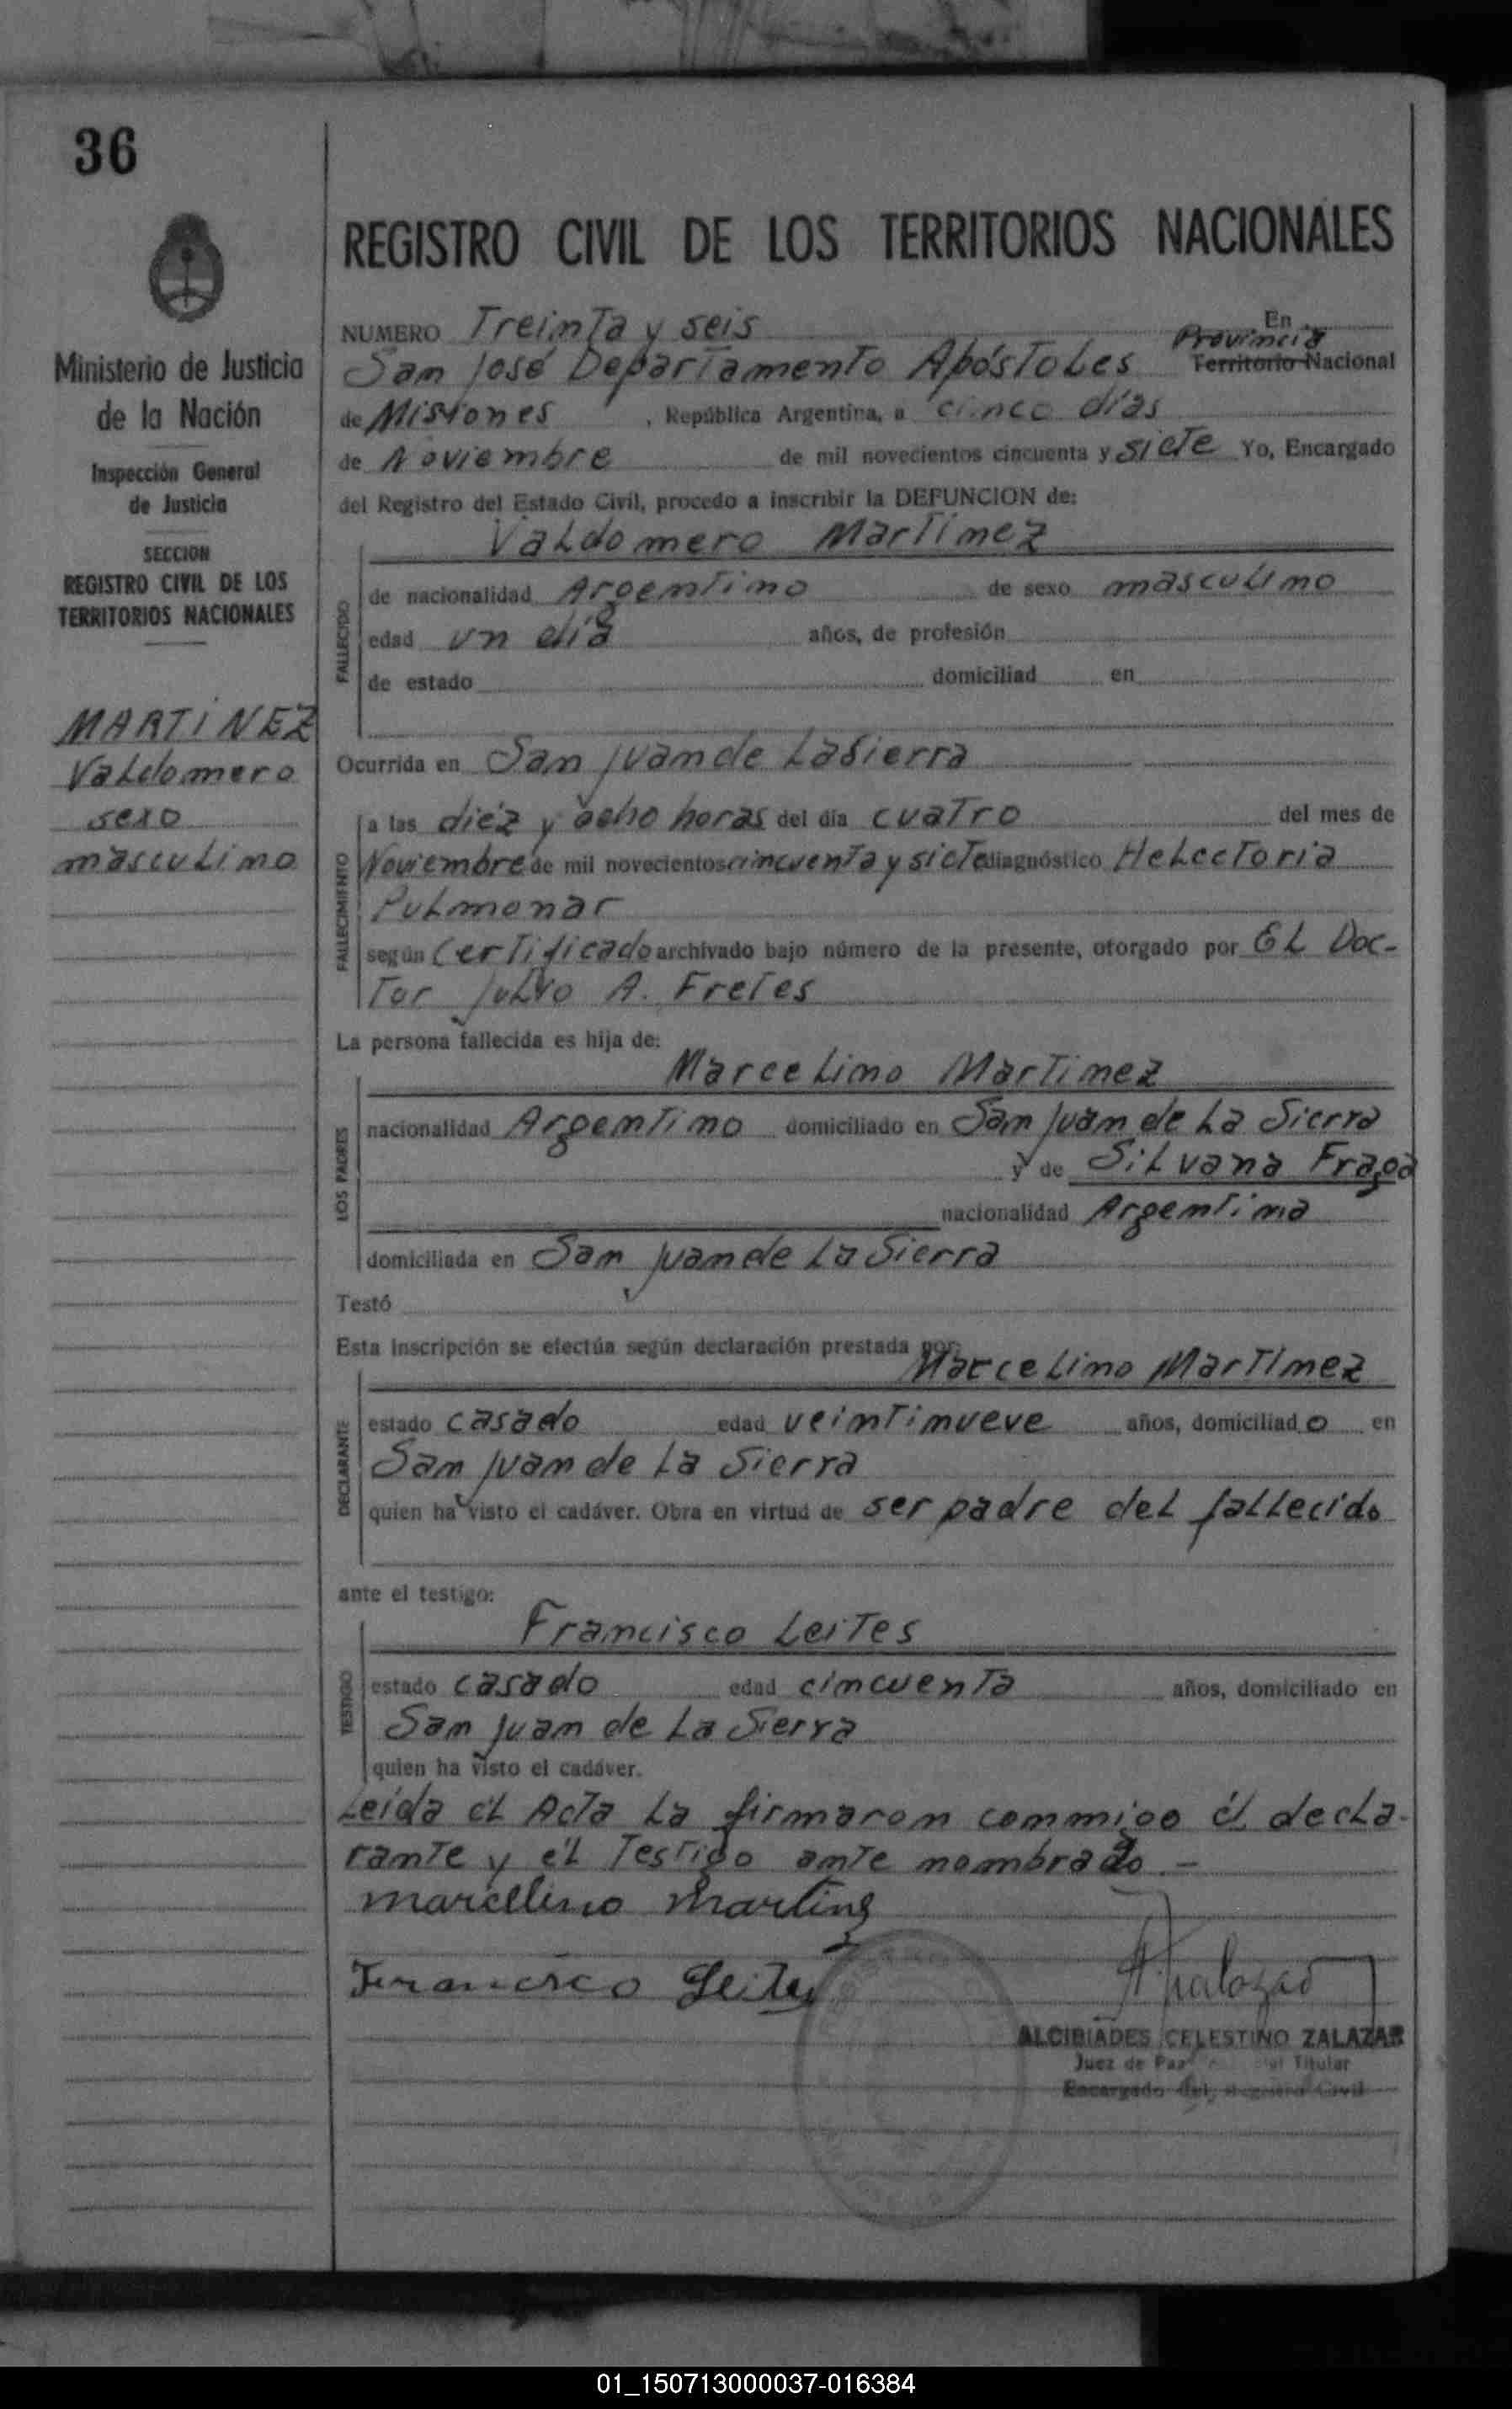 36
Ministerio de Justicia
de la Nación
Inspección General
de Justicia
SECCION
REGISTRO CIVIL DE LOS
TERRITORIOS NACIONALES
MARTINEZ
Valdomero
sexo
masculino
REGISTRO CIVIL DE LOS TERRITORIOS NACIONALES
NUMERO Treinta y seis En
San José Departamento Apóstoles Provincia Territorio Nacional
de Misiones, República Argentina, a cinco días
de Noviembre de mil novecientos cincuenta y siete Yo, Encargado
del Registro del Estado Civil, procedo a inscribir la DEFUNCION de:
Valdomero Martinez
FALLECIDO
de nacionalidad Argentino de sexo masculino
edad un día años, de profesión
de estado domiciliad en
Ocurrida en San Juan de La Sierra
FALLECIMIENTO
a las diéz y ocho horas del día cuatro del mes de
Noviembre de mil novecientos cincuenta y siete diagnóstico Helectoria
Pulmonar
según Certificado archivado bajo número de la presente, otorgado por El Doc-
tor Julio A. Fretes
La persona fallecida es hija de:
Marcelino Martinez
LOS PADRES
nacionalidad Argentino domiciliado en San Juan de La Sierra
y de Silvana Fraga
nacionalidad Argentina
domiciliada en San Juan de La Sierra
Testó
Esta inscripción se efectúa según declaración prestada por:
Marcelino Martinez
DECLARANTE
estado casado edad veintinueve años, domiciliado en
San Juan de La Sierra
quien ha visto el cadáver. Obra en virtud de ser padre del fallecido
ante el testigo:
Francisco Leites
TESTIGO
estado casado edad cincuenta años, domiciliado en
San Juan de La Sierra
quien ha visto el cadáver.
Leída él Acta La firmaron conmigo él decla-
rante y él Testigo ante nombrado.-
marcelino Martinez
Francisco Leites
ALCIBIADES CELESTINO ZALAZAR
Juez de Paz Titular
Encargado del Registro Civil
01_150713000037-016384